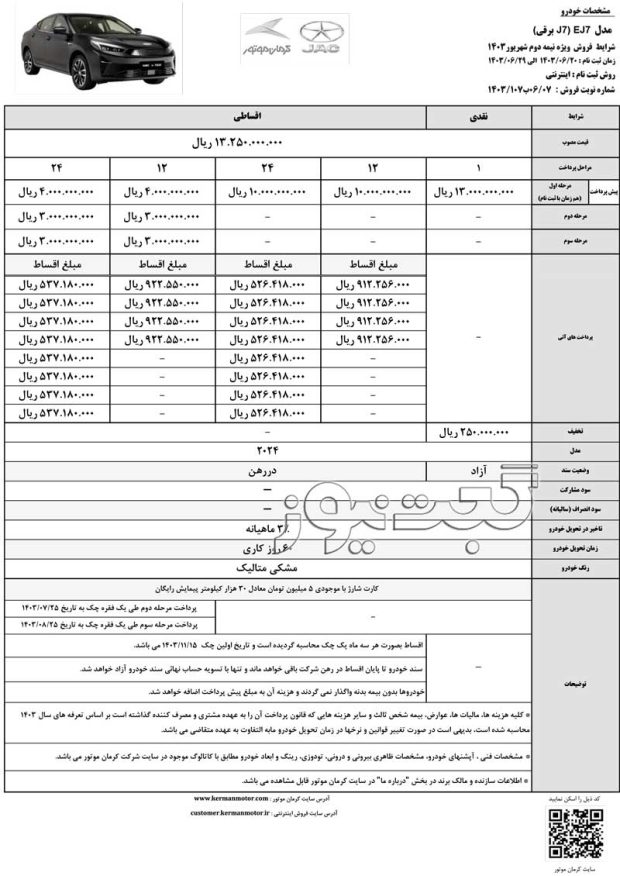 مشخصات خودرو
مدل EJ7 (J7 برقی)
شرایط فروش ویژه نیمه دوم شهریور ۱۴۰۳
زمان ثبت نام : ۱۴۰۳/۰۶/۲۰ الی ۱۴۰۳/۰۶/۲۹
روش ثبت نام : اینترنتی
شماره نوبت فروش : ۱۴۰۳/۱۰۷ب۰۶/۰۷
کرمان موتور
JAC
شرایط نقدی اقساطی
قیمت مصوب ۱۳.۲۵۰.۰۰۰.۰۰۰ ریال
مراحل پرداخت ۱ ۱۲ ۲۴ ۱۲ ۲۴
پیش پرداخت مرحله اول (هم زمان با ثبت نام) ۱۳.۰۰۰.۰۰۰.۰۰۰ ریال ۱۰.۰۰۰.۰۰۰.۰۰۰ ریال ۱۰.۰۰۰.۰۰۰.۰۰۰ ریال ۴.۰۰۰.۰۰۰.۰۰۰ ریال ۴.۰۰۰.۰۰۰.۰۰۰ ریال
مرحله دوم - - - ۳.۰۰۰.۰۰۰.۰۰۰ ریال ۳.۰۰۰.۰۰۰.۰۰۰ ریال
مرحله سوم - - - ۳.۰۰۰.۰۰۰.۰۰۰ ریال ۳.۰۰۰.۰۰۰.۰۰۰ ریال
پرداخت های آتی - مبلغ اقساط مبلغ اقساط مبلغ اقساط مبلغ اقساط
۹۱۲.۲۵۶.۰۰۰ ریال ۵۲۶.۴۱۸.۰۰۰ ریال ۹۲۲.۵۵۰.۰۰۰ ریال ۵۳۷.۱۸۰.۰۰۰ ریال
۹۱۲.۲۵۶.۰۰۰ ریال ۵۲۶.۴۱۸.۰۰۰ ریال ۹۲۲.۵۵۰.۰۰۰ ریال ۵۳۷.۱۸۰.۰۰۰ ریال
۹۱۲.۲۵۶.۰۰۰ ریال ۵۲۶.۴۱۸.۰۰۰ ریال ۹۲۲.۵۵۰.۰۰۰ ریال ۵۳۷.۱۸۰.۰۰۰ ریال
۹۱۲.۲۵۶.۰۰۰ ریال ۵۲۶.۴۱۸.۰۰۰ ریال ۹۲۲.۵۵۰.۰۰۰ ریال ۵۳۷.۱۸۰.۰۰۰ ریال
- ۵۲۶.۴۱۸.۰۰۰ ریال - ۵۳۷.۱۸۰.۰۰۰ ریال
- ۵۲۶.۴۱۸.۰۰۰ ریال - ۵۳۷.۱۸۰.۰۰۰ ریال
- ۵۲۶.۴۱۸.۰۰۰ ریال - ۵۳۷.۱۸۰.۰۰۰ ریال
- ۵۲۶.۴۱۸.۰۰۰ ریال - ۵۳۷.۱۸۰.۰۰۰ ریال
تخفیف ۲۵۰.۰۰۰.۰۰۰ ریال -
مدل ۲۰۲۴
وضعیت سند آزاد در رهن
سود مشارکت -
سود انصراف (سالیانه) -
تاخیر در تحویل خودرو ۳٪ ماهیانه
زمان تحویل خودرو ۶۰ روز کاری
رنگ خودرو مشکی متالیک
گجت نیوز
توضیحات
کارت شارژ با موجودی ۵ میلیون تومان معادل ۳۰ هزار کیلومتر پیمایش رایگان
- پرداخت مرحله دوم طی یک فقره چک به تاریخ ۱۴۰۳/۰۷/۲۵
پرداخت مرحله سوم طی یک فقره چک به تاریخ ۱۴۰۳/۰۸/۲۵
- اقساط بصورت هر سه ماه یک چک محاسبه گردیده است و تاریخ اولین چک ۱۴۰۳/۱۱/۱۵ می باشد.
سند خودرو تا پایان اقساط در رهن شرکت باقی خواهد ماند و تنها با تسویه حساب نهائی سند خودرو آزاد خواهد شد.
خودروها بدون بیمه بدنه واگذار نمی گردند و هزینه آن به مبلغ پیش پرداخت اضافه خواهد شد.
* کلیه هزینه ها، مالیات ها، عوارض، بیمه شخص ثالث و سایر هزینه هایی که قانون پرداخت آن را به عهده مشتری و مصرف کننده گذاشته است بر اساس تعرفه های سال ۱۴۰۳
محاسبه شده است، بدیهی است در صورت تغییر قوانین و نرخها در زمان تحویل خودرو مابه التفاوت به عهده متقاضی می باشد.
* مشخصات فنی ، آپشنهای خودرو، مشخصات ظاهری بیرونی و درونی، تودوزی، رینگ و ابعاد خودرو مطابق با کاتالوگ موجود در سایت شرکت کرمان موتور می باشد.
* اطلاعات سازنده و مالک برند در بخش "درباره ما" در سایت کرمان موتور قابل مشاهده می باشد.
آدرس سایت کرمان موتور : www.kermanmotor.com
آدرس سایت فروش اینترنتی : customer.kermanmotor.ir
کد ذیل را اسکن نمایید
سایت کرمان موتور